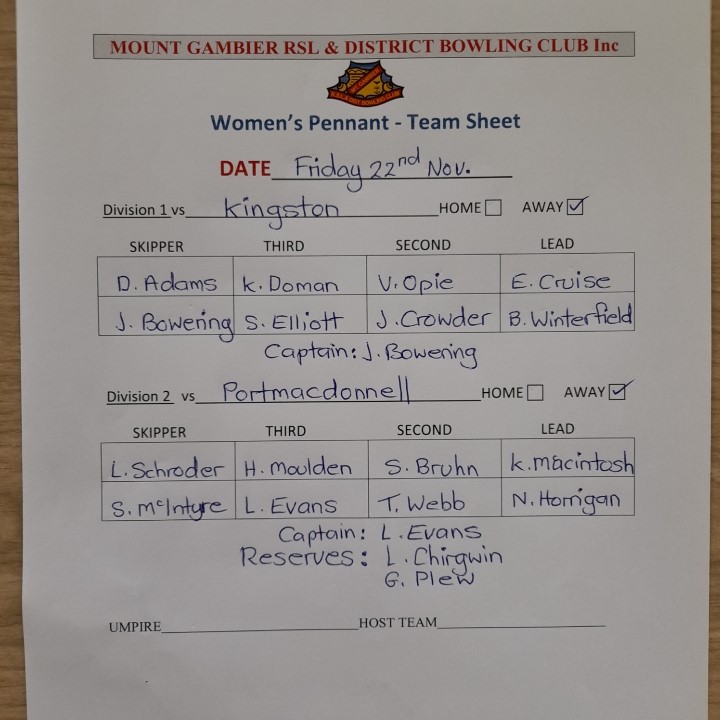 MOUNT GAMBIER RSL & DISTRICT BOWLING CLUB Inc
Women's Pennant - Team Sheet
DATE Friday 22nd Nov.
Division 1 vs Kingston HOME AWAY
SKIPPER THIRD SECOND LEAD
D. Adams K. Doman V. Opie E. Cruise
J. Bowering S. Elliott J. Crowder B. Winterfield
Captain: J. Bowering
Division 2 vs Portmacdonnell HOME AWAY
SKIPPER THIRD SECOND LEAD
L. Schroder H. Moulden S. Bruhn K. Macintosh
S. McIntyre L. Evans T. Webb N. Horrigan
Captain: L. Evans
Reserves: L. Chirgwin
G. Plew
UMPIRE HOST TEAM